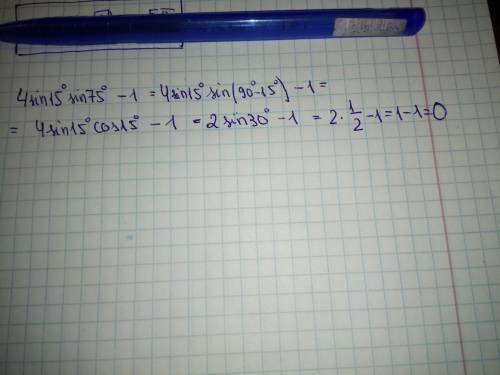 4sin15° sin75° - 1 = 4sin15° sin(90°-15°) - 1 =
= 4sin15° cos15° - 1 = 2sin30° - 1 = 2·1/2 - 1 = 1 - 1 = 0